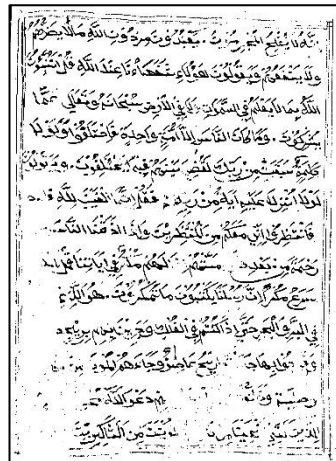 إنه لا يفلح المجرمون ويعبدون من دون الله ما لا يضرهم
ولا ينفعهم ويقولون هؤلاء شفعاؤنا عند الله قل أتنبئون
الله بما لا يعلم في السموات ولا في الأرض سبحانه وتعالى عما
يشركون وما كان الناس إلا أمة واحدة فاختلفوا ولولا
كلمة سبقت من ربك لقضي بينهم فيما فيه يختلفون ويقولون
لولا أنزل عليه آية من ربه فقل إنما الغيب لله
فانتظروا إني معكم من المنتظرين وإذا أذقنا الناس
رحمة من بعد مستهم لهم مكر في آياتنا قل الله
أسرع مكرا إن رسلنا يكتبون ما تمكرون هو الذي
في البر والبحر حتى إذا كنتم في الفلك وجرين بهم بريح
ريح عاصف وجاءهم الموج
دعوا الله
من الشاكرين